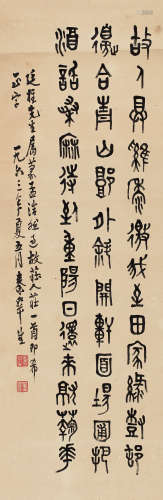 故人具雞黍邀我至田家綠樹邨
邊合青山郭外斜開軒面場圃把
酒話桑麻待到重陽日還來就菊花
先生屬篆孟浩然過故人莊一首即希
正字 一九六三年夏五月秦咢生